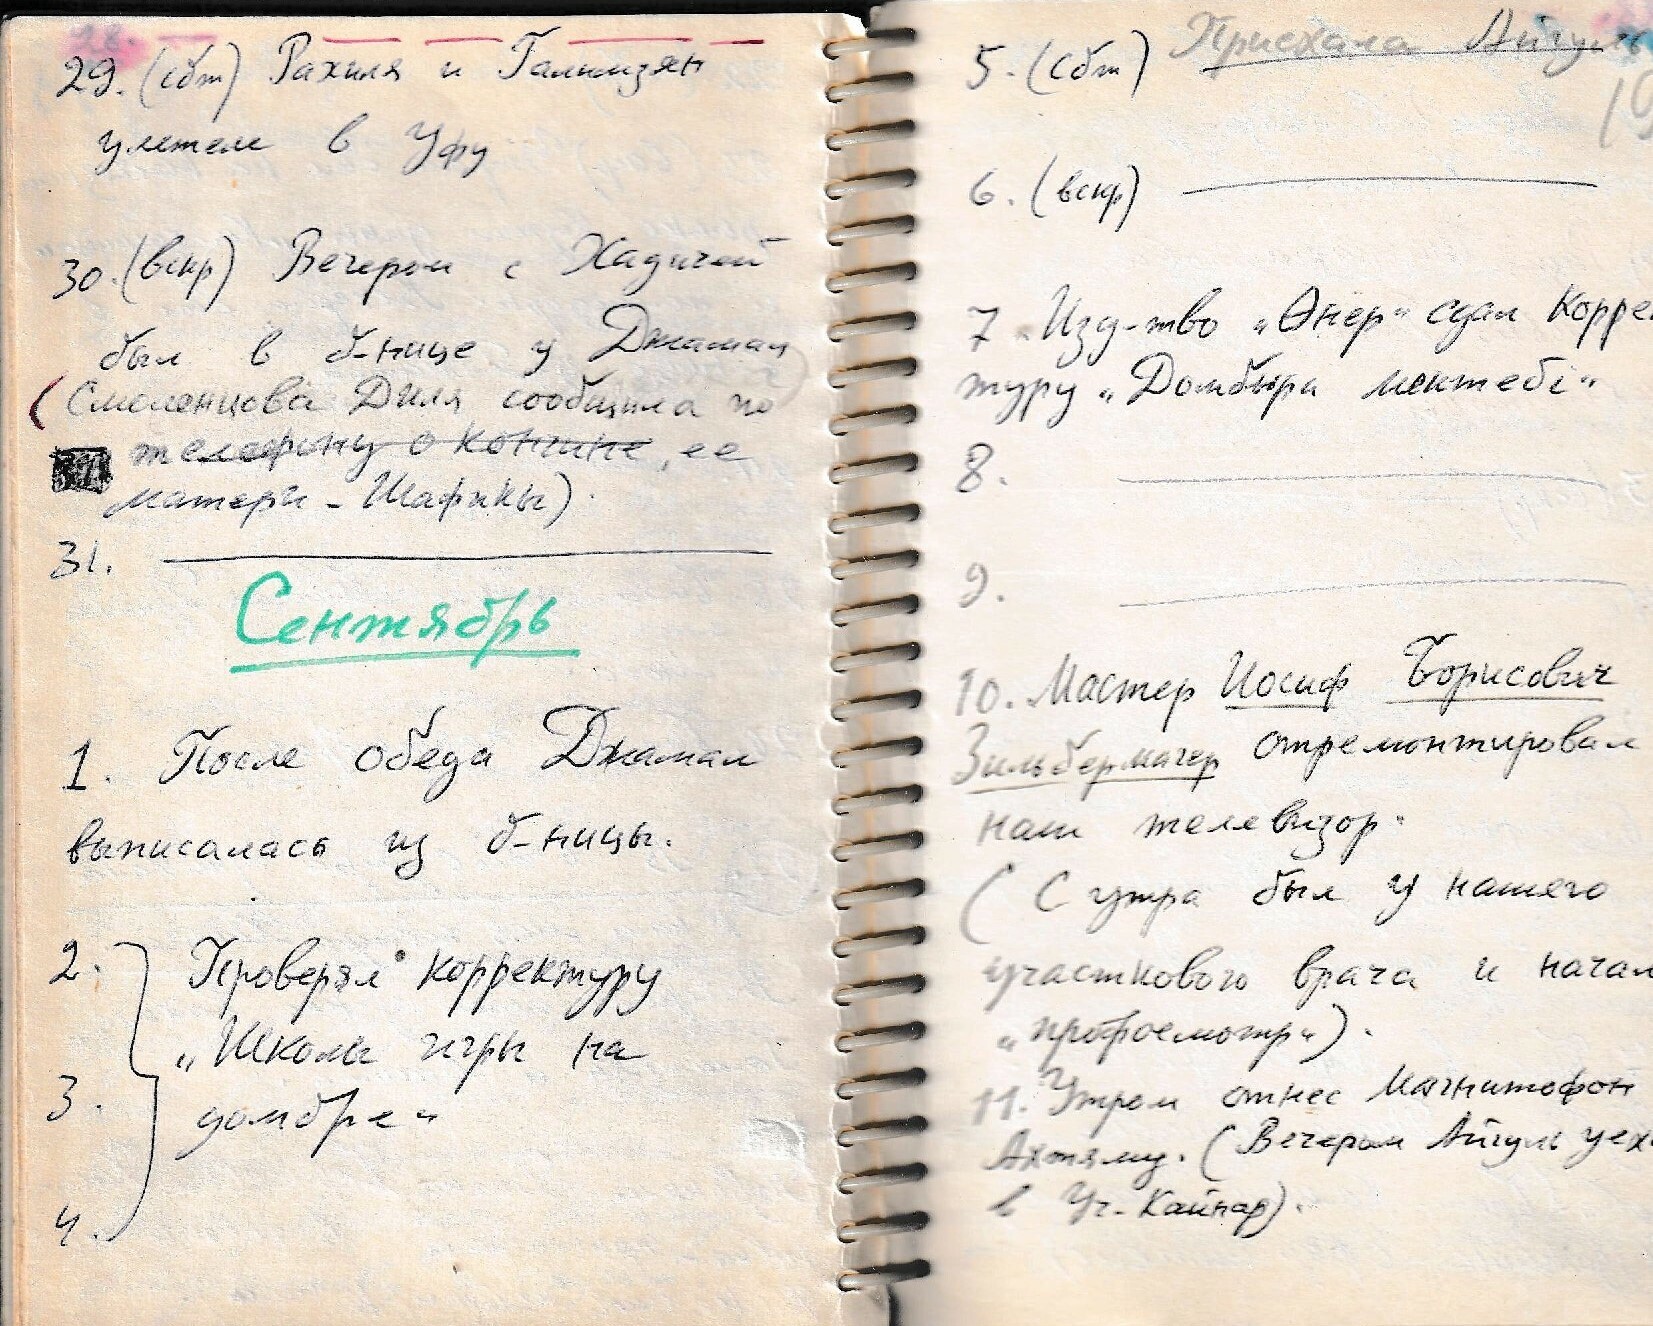 28.
29. (сбт) Рахиля и Галимзян
улетели в Уфу
30. (вскр) Вечером с Хадичей
был в б-нице у Джамал
(Смоленцова Диля сообщила по
телефону о кончине, ее
матери - Шафики).
31.
Сентябрь
1. После обеда Джамал
выписалась из б-ницы.
2. Проверял корректуру
„Школы игры на
3. домбре"
4.
5. (сбт) Приехала Айгуль
6. (вскр)
7. Изд-тво „Өнер" сдал Корре
туру „Домбыра мектебі"
8.
9.
10. Мастер Иосиф Борисович
Зильбермагер отремонтировал
наш телевизор.
(С утра был у нашего
участкового врача и начал
„профосмотр").
11. Утром отнес Магнитофон
Ахтяму. (Вечером Айгуль уех
в Уч-Кайнар).